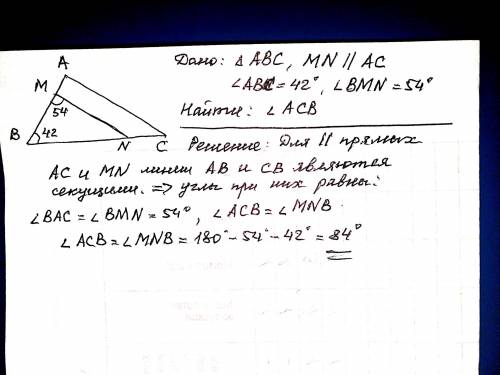 A
M
54
B
42
N
C
Дано: △ABC, MN || AC
∠ABC = 42°, ∠BMN = 54°
Найти: ∠ACB
Решение: Для || прямых
AC и MN линии AB и CB являются
секущими. => углы при них равны:
∠BAC = ∠BMN = 54°, ∠ACB = ∠MNB.
∠ACB = ∠MNB = 180° - 54° - 42° = 84°